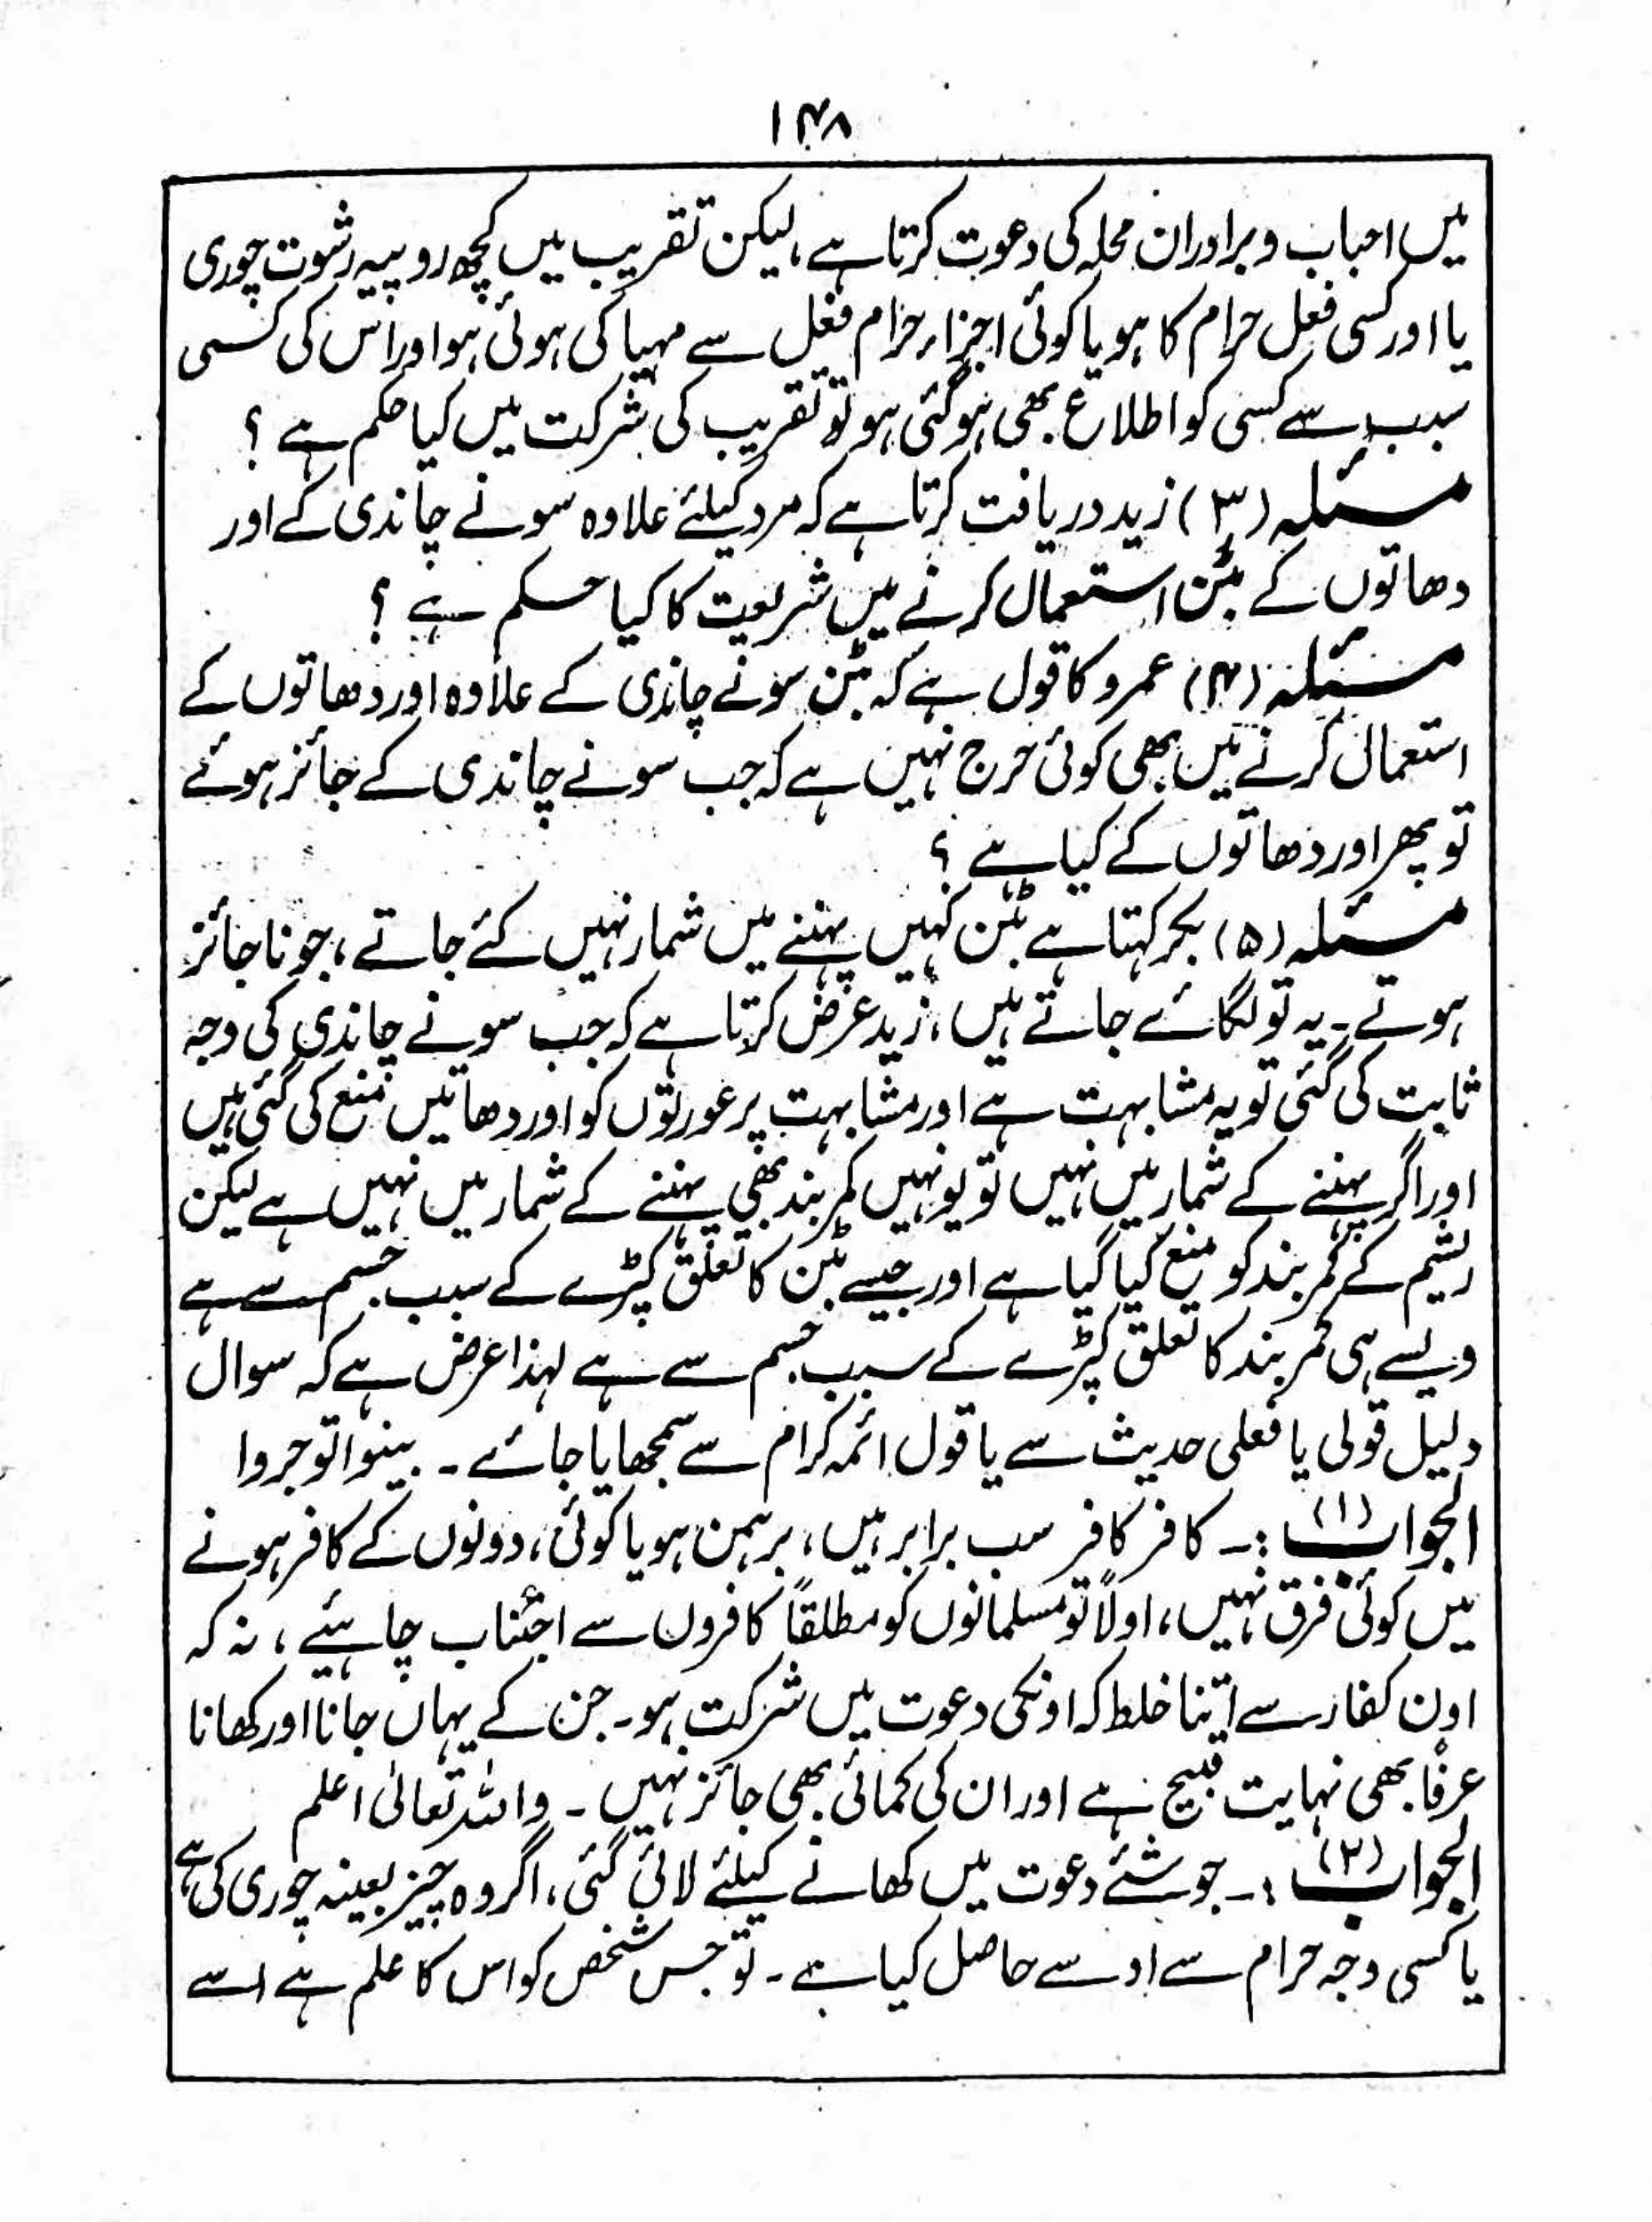 ۱۴۸
میں احباب و برادران محلہ کی دعوت کرتا ہے، لیکن تقریب میں کچھ روپیہ رشوت چوری
یا اور کسی فعل حرام کا ہو یا کوئی اجزاء حرام فعل سے مہیا کی ہوئی ہو اور اس کی کسی
سبب سے کسی کو اطلاع بھی ہو گئی ہو تو تقریب کی شرکت میں کیا حکم ہے ؟
مسئلہ (۳) زید دریافت کرتا ہے کہ مرد کیلئے علاوہ سونے چاندی کے اور
دھاتوں کے بٹن استعمال کرنے میں شریعت کا کیا حکم ہے ؟
مسئلہ (۴) عمرو کا قول ہے کہ بٹن سونے چاندی کے علاوہ اور دھاتوں کے
استعمال کرنے میں بھی کوئی حرج نہیں ہے کہ جب سونے چاندی کے جائز ہوئے
تو پھر اور دھاتوں کے کیا ہے ؟
مسئلہ (۵) بکر کہتا ہے بٹن کہیں پہننے میں شمار نہیں کئے جاتے، جو ناجائز
ہوتے۔ یہ تو لگائے جاتے ہیں، زید عرض کرتا ہے کہ جب سونے چاندی کی وجہ
ثابت کی گئی تو یہ مشابہت ہے اور مشابہت پر عورتوں کو اور دھاتیں منع کی گئی ہیں
اور اگر پہننے کے شمار میں نہیں تو یونہیں کمر بند بھی پہننے کے شمار میں نہیں ہے لیکن
ریشم کے کمر بند کو منع کیا گیا ہے اور جیسے بٹن کا تعلق کپڑے کے سبب جسم سے ہے
ویسے ہی کمر بند کا تعلق کپڑے کے سبب جسم سے ہے لہذا عرض ہے کہ سوال
دلیل قولی یا فعلی حدیث سے یا قول ائمہ کرام سے سمجھایا جائے۔ بینوا توجروا
الجواب (۱) :۔ کافر کافر سب برابر ہیں، برہمن ہو یا کوئی، دونوں کے کافر ہونے
میں کوئی فرق نہیں، اولاً تو مسلمانوں کو مطلقاً کافروں سے اجتناب چاہئیے، نہ کہ
اون کفار سے اتنا خلط کہ اونکی دعوت میں شرکت ہو۔ جن کے یہاں جانا اور کھانا
عرفًا بھی نہایت قبیح ہے اور ان کی کمائی بھی جائز نہیں۔ واللہ تعالیٰ اعلم
الجواب (۲) :۔ جو شئے دعوت میں کھانے کیلئے لائی گئی، اگر وہ چیز بعینہ چوری کی ہے
یا کسی وجہ حرام سے اوسے حاصل کیا ہے۔ تو جس شخص کو اس کا علم ہے اسے